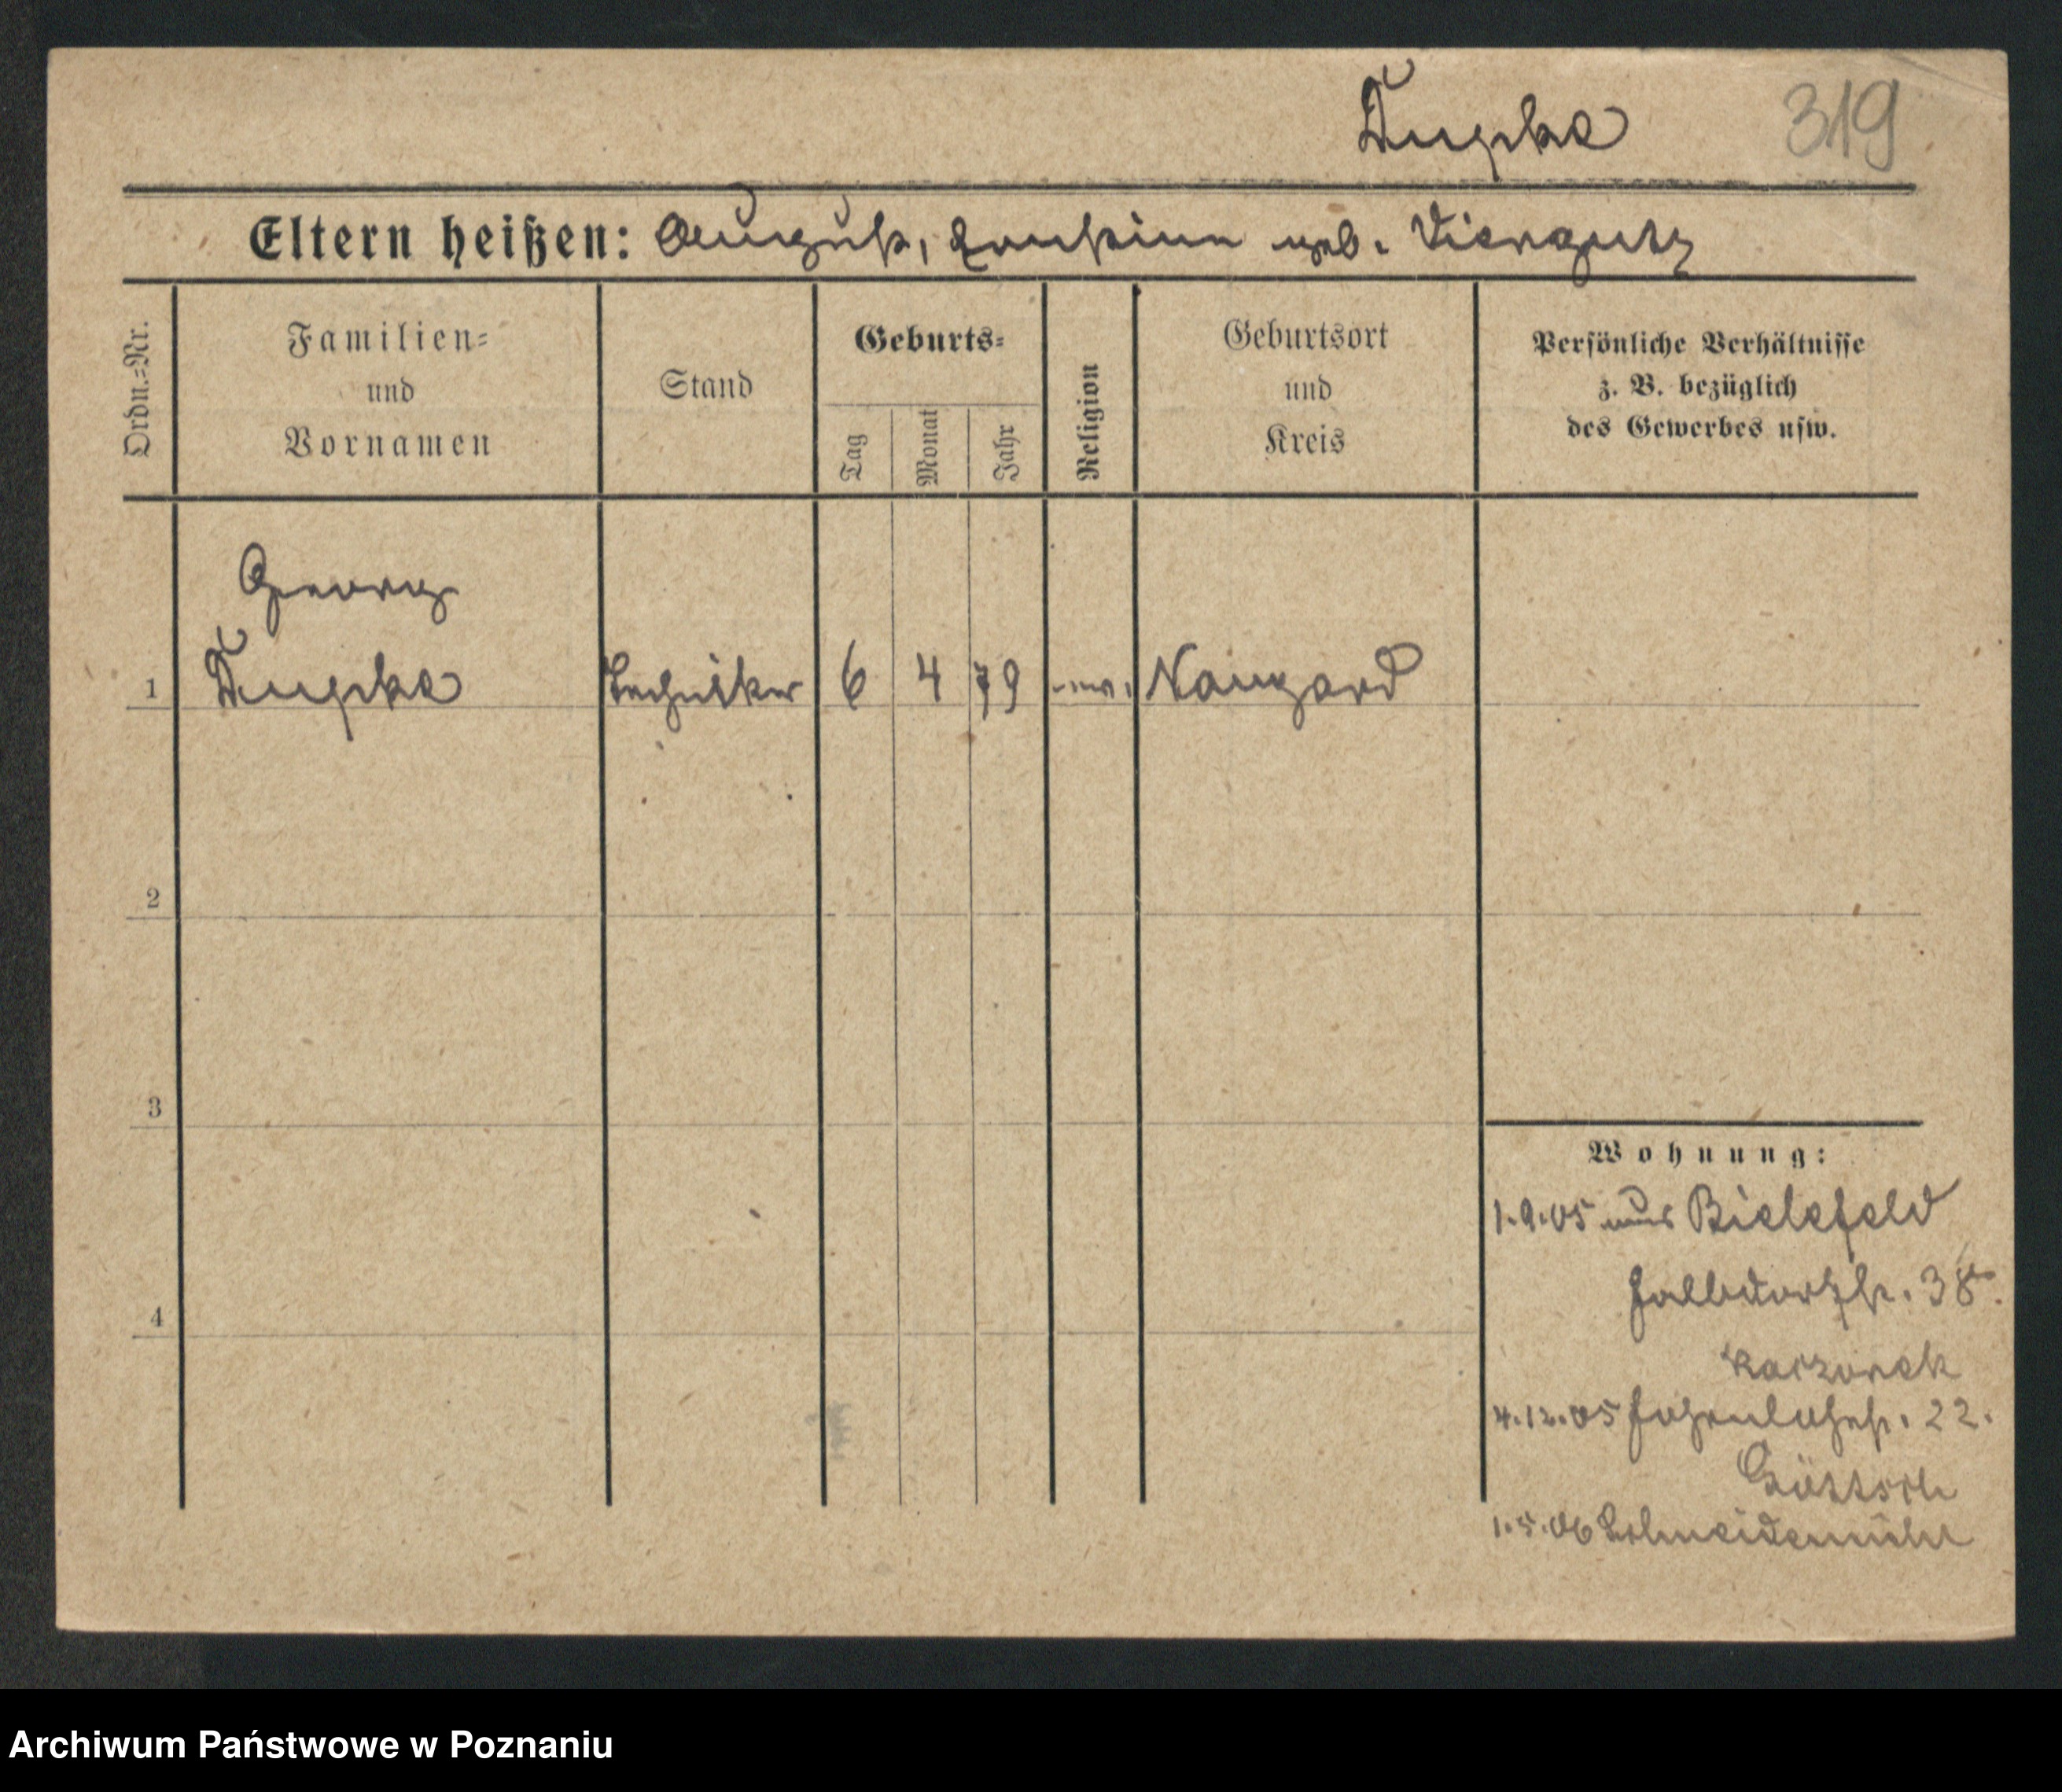 319
Eltern heißen: August, geb. Viergutz
Ordn.=Nr.
Familien=
und
Vornamen
Stand
Geburts=
Tag
Monat
Jahr
Religion
Geburtsort
und
Kreis
Persönliche Verhältnisse
z. B. bezüglich
des Gewerbes usw.
Georg
1 Techniker 6 4 79 ev. Naugard
2
3
4
Wohnung:
1.9.05 aus Bielefeld
Halldorfstr. 38
Kaczorek
4.12.05 Hohenlohestr. 22.
1.5.06 Schneidemühl
Archiwum Państwowe w Poznaniu